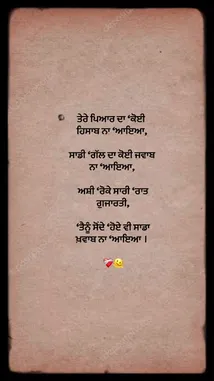 ਤੇਰੇ ਪਿਆਰ ਦਾ ‘ਕੋਈ
ਹਿਸਾਬ ਨਾ ‘ਆਇਆ,
ਸਾਡੀ ‘ਗੱਲ ਦਾ ਕੋਈ ਜਵਾਬ
ਨਾ ‘ਆਇਆ,
ਅਸੀ ‘ਰੋਕੇ ਸਾਰੀ ‘ਰਾਤ
ਗੁਜਾਰਤੀ,
‘ਤੈਨੂੰ ਸੌਂਦੇ ‘ਹੋਏ ਵੀ ਸਾਡਾ
ਖ਼ਵਾਬ ਨਾ ‘ਆਇਆ ।
❤️‍🩹🫠